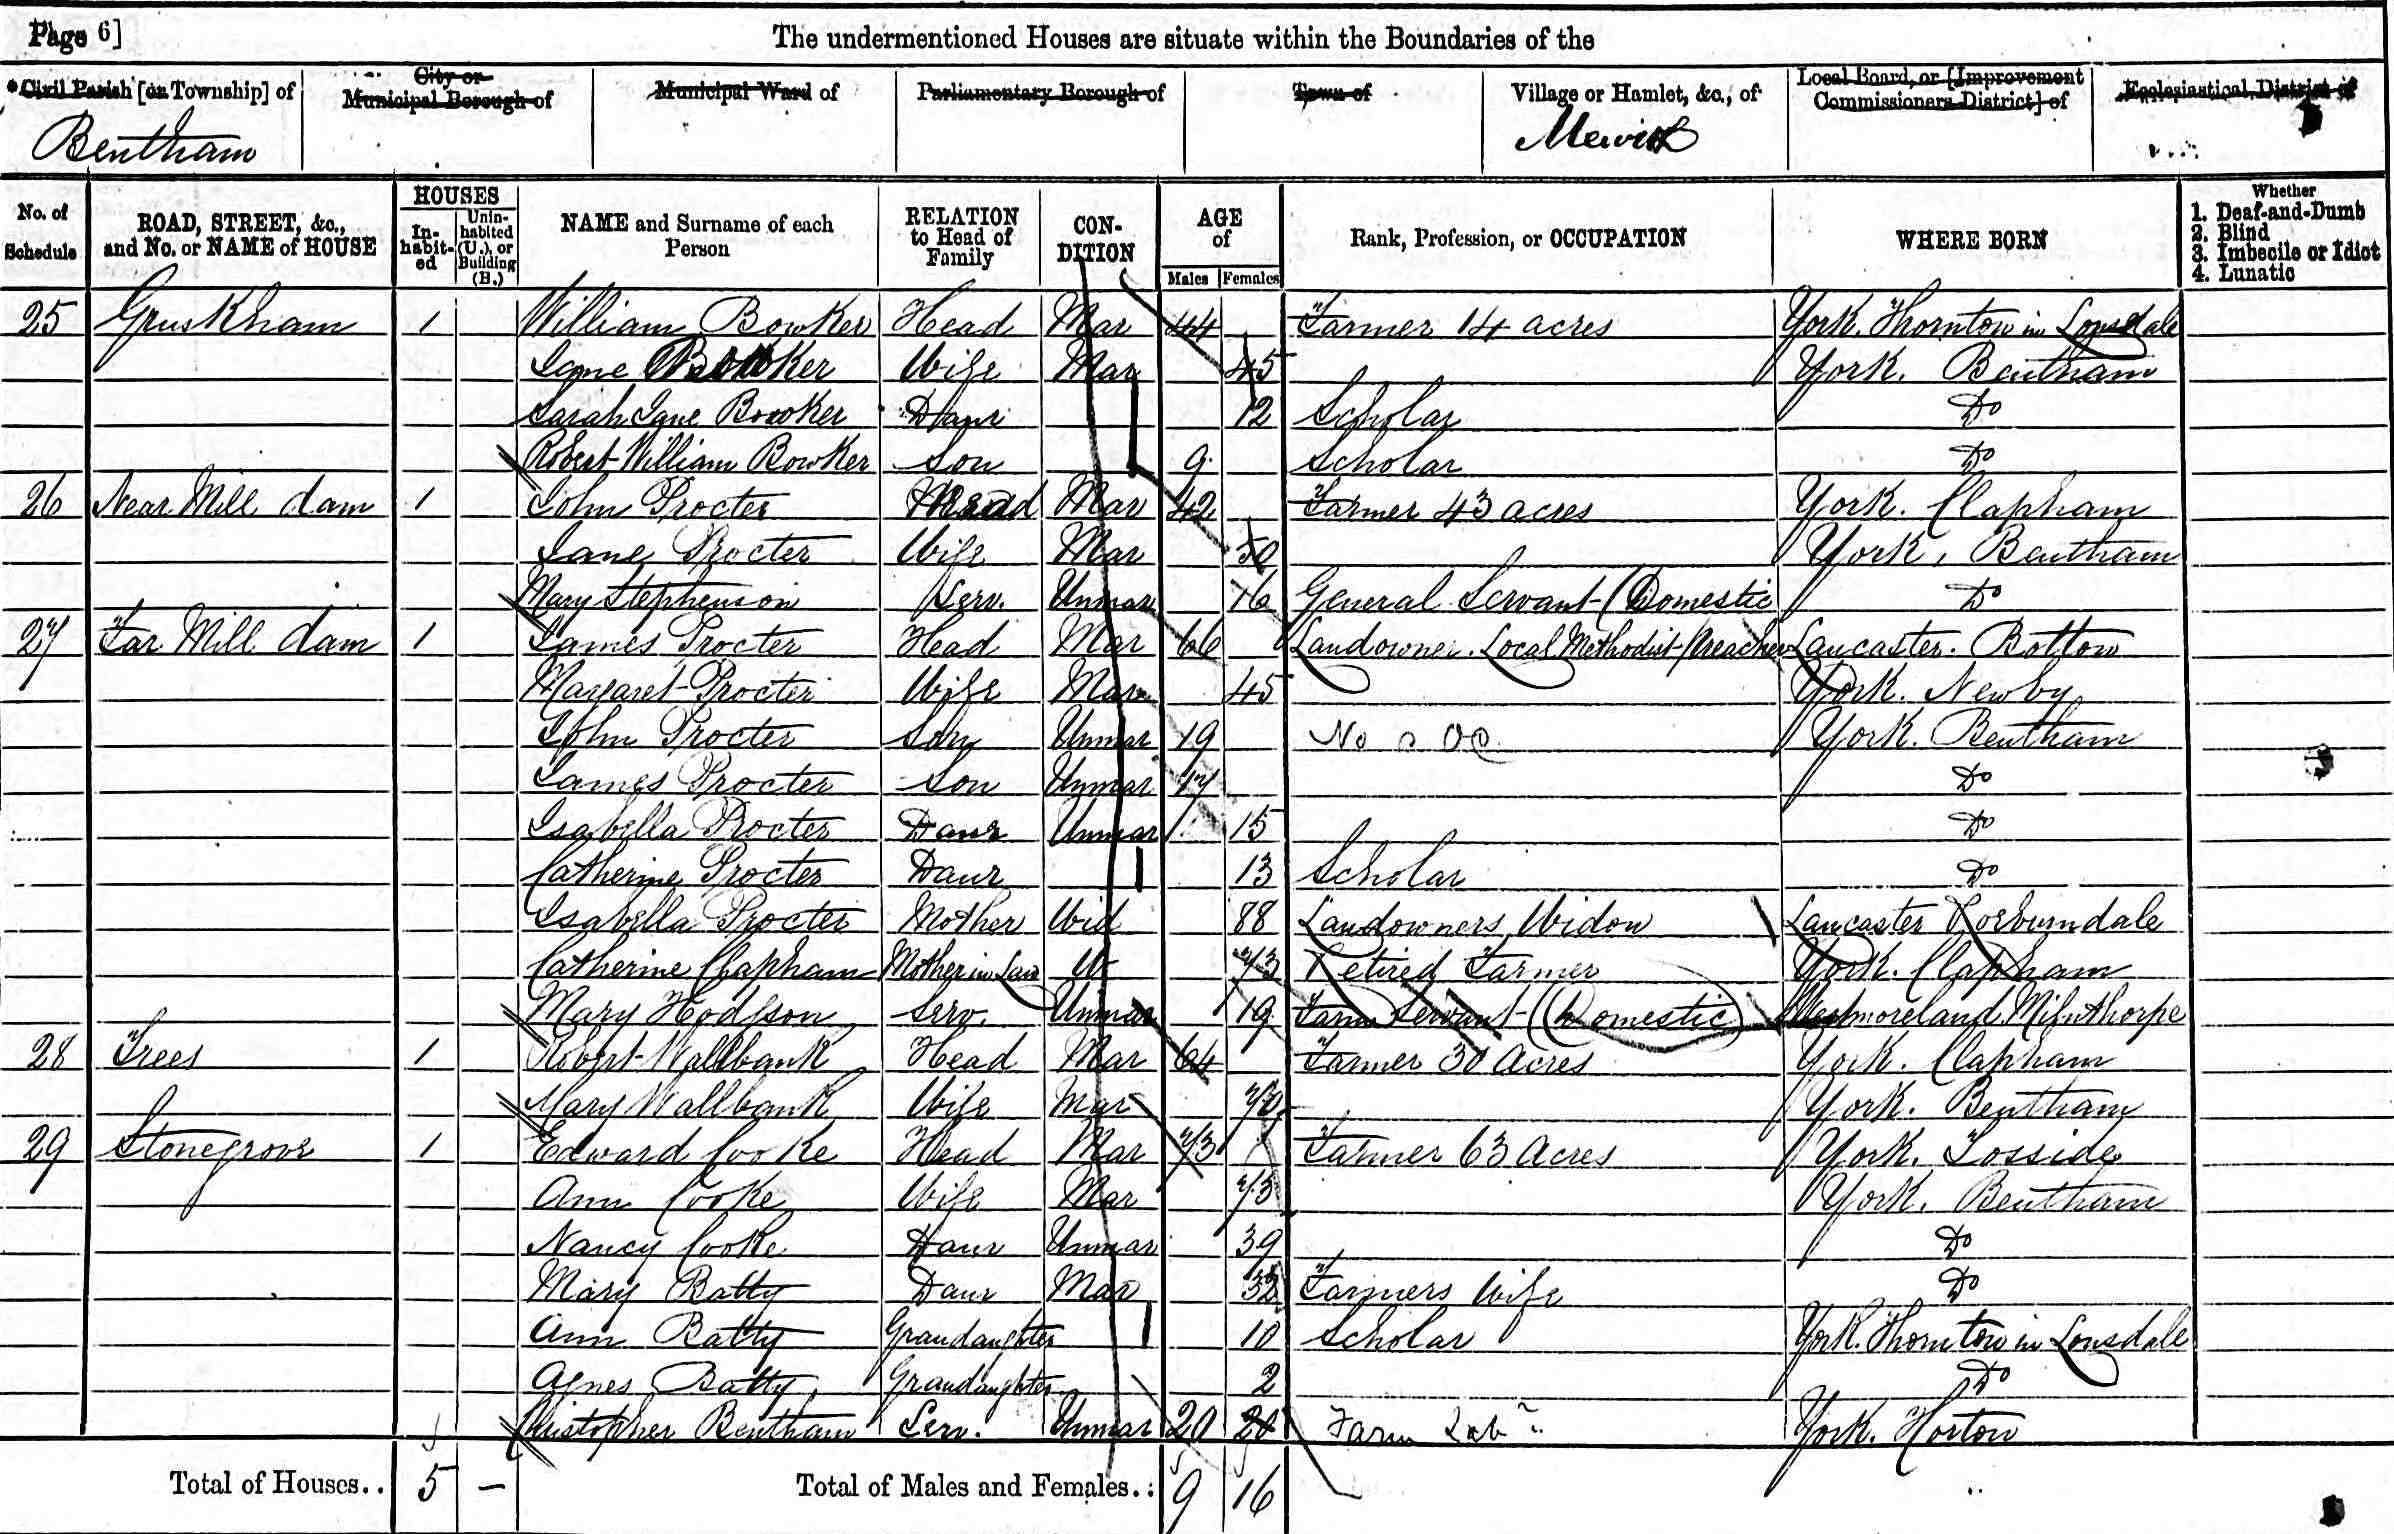 Page 6]
The undermentioned Houses are situate within the Boundaries of the
Civil Parish [or Township] of
City or Municipal Borough of
Municipal Ward of
Parliamentary Borough of
Town of
Village or Hamlet, &c., of
Local Board, or [Improvement Commissioners District] of
Ecclesiastical District of
Bentham
Mewith
No. of Schedule
ROAD, STREET, &c., and No. or NAME of HOUSE
HOUSES
Inhabited
Uninhabited (U.), or Building (B.)
NAME and Surname of each Person
RELATION to Head of Family
CONDITION
AGE of
Males
Females
Rank, Profession, or OCCUPATION
WHERE BORN
Whether
1. Deaf-and-Dumb
2. Blind
3. Imbecile or Idiot
4. Lunatic
25 Gruskham 1 William Bowker Head Mar 44 Farmer 14 acres York. Thornton in Lonsdale
Jane Bowker Wife Mar 45 York. Bentham
Sarah Jane Bowker Daur 12 Scholar Do
Robert William Bowker Son 9 Scholar Do
26 Near Mill dam 1 John Procter Head Mar 42 Farmer 43 acres York. Clapham
Jane Procter Wife Mar 50 York, Bentham
Mary Stephenson Serv. Unmar 16 General Servant (Domestic Do
27 Far Mill dam 1 James Procter Head Mar 66 Landowner. Local Methodist Preacher Lancaster. Botton
Margaret Procter Wife Mar 45 York. Newby
John Procter Son Unmar 19 No Oc York. Bentham
James Procter Son Unmar 17 Do
Isabella Procter Daur Unmar 15 Do
Catherine Procter Daur 13 Scholar Do
Isabella Procter Mother Wid 88 Landowners Widow Lancaster Roeburndale
Catherine Clapham Mother in Law W 73 Retired Farmer York. Clapham
Mary Hodgson Serv. Unmar 19 Farm Servant (Domestic) Westmoreland Milnthorpe
28 Trees 1 Robert Wallbank Head Mar 64 Farmer 30 Acres York. Clapham
Mary Wallbank Wife Mar 70 York. Bentham
29 Stonegrove 1 Edward Cooke Head Mar 73 Farmer 63 Acres York. Tosside
Ann Cooke Wife Mar 73 York. Bentham
Nancy Cooke Daur Unmar 39 Do
Mary Batty Daur Mar 32 Farmers Wife Do
Ann Batty Grandaughter 10 Scholar York. Thornton in Lonsdale
Agnes Batty Grandaughter 2 Do
Christopher Bentham Serv. Unmar 20 20 Farm Lab York. Horton
Total of Houses.. 5 – Total of Males and Females.. 9 16